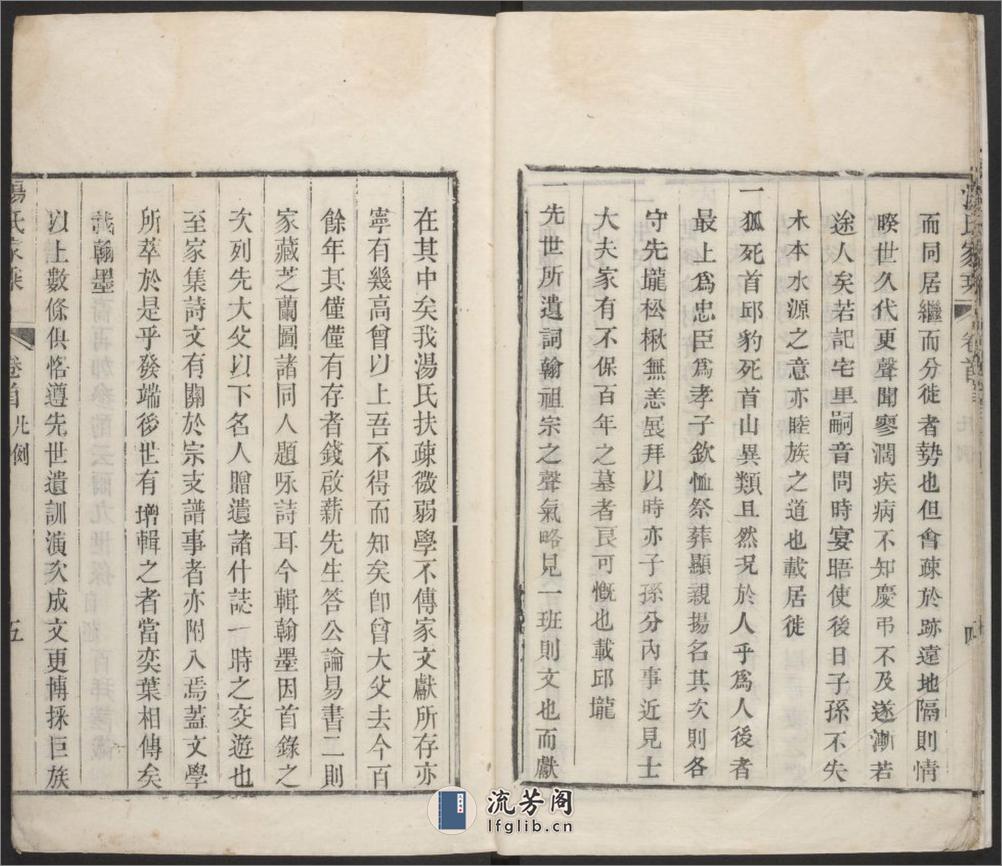 而同居繼而分徙者勢也但會疎於跡遠地隔則情
暌世久代更聲聞寥濶疾病不知慶弔不及遂漸若
途人矣若記宅里嗣音問時宴晤使後日子孫不失
木本水源之意亦睦族之道也載居徙
一狐死首邱豹死首山異類且然況於人乎爲人後者
最上爲忠臣爲孝子欽恤祭葬顯親揚名其次則各
守先壠松楸無恙展拜以時亦子孫分內事近見士
大夫家有不保百年之墓者良可慨也載邱壠
一先世所遺詞翰祖宗之聲氣略見一班則文也而獻
湯氏家乘
卷首
四
在其中矣我湯氏扶疎微弱學不傳家文獻所存亦
寧有幾高曾以上吾不得而知矣卽曾大父去今百
餘年其僅僅有存者錢啟薪先生答公論易書二則
家藏芝蘭圖諸同人題咏詩耳今輯翰墨因首錄之
次列先大父以下名人贈遺諸什誌一時之交遊也
至家集詩文有關於宗支譜事者亦附入焉蓋文學
所萃於是乎發端後世有增輯之者當奕葉相傳矣
載翰墨
以上數條俱恪遵先世遺訓演次成文更博採巨族
湯氏家乘
卷首
凡例
五
流芳阁
lfglib.cn